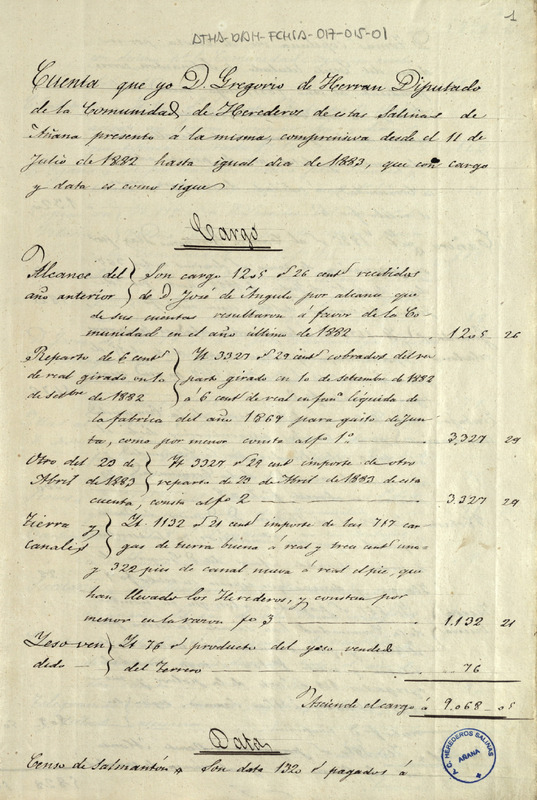 ATHA-DAH-FCHSA-017-015-01
1
Cuenta que yo D. Gregorio de Herran Diputado
de la Comunidad de Herederos de estas Salinas de
Añana presento á la misma, comprensiva desde el 11 de
Julio de 1882 hasta igual dia de 1883, que con cargo
y data es como sigue
Cargo
Alcance del año anterior } Son cargo 1205 r. 26 cent.s recibidos
de D. José de Angulo por alcance que
de sus cuentas resultaron á favor de la Co-
munidad en el año último de 1882 1205 26
Reparto de 6 cent.s de real girado en 10 de setbre. de 1882 } Yt 3327 r. 29 cent.s cobrados del re-
parto girado en 10 de setembre de 1882
á 6 cent.s de real en fan.a líquida de
la fabrica del año 1867 para gasto de Jun-
ta, como por menor consta al fo. 1.º 3.327 29
Otro del 23 de Abril de 1883 } Yt 3327 r. 29 cent. importe de otro
reparto de 23 de Abril de 1883 de esta
cuenta, consta al fo. 2 3.327 29
Tierra y canales } Yt 1132 r. 21 cent.s importe de las 717 car-
gas de tierra buena á real y trece cent.s una
y 322 pies de canal nueva á real el pie, que
han llevado los Herederos, y constan por
menor en la razon fo. 3 1.132 21
Yeso vendido } Yt 76 r. producto del yeso vendido
del Terrero 76
Asciende el cargo á 9.068 05
Data
Censo de Salmantón } Son data 1320 r. pagados á
A. G. HEREDEROS SALINAS
AÑANA